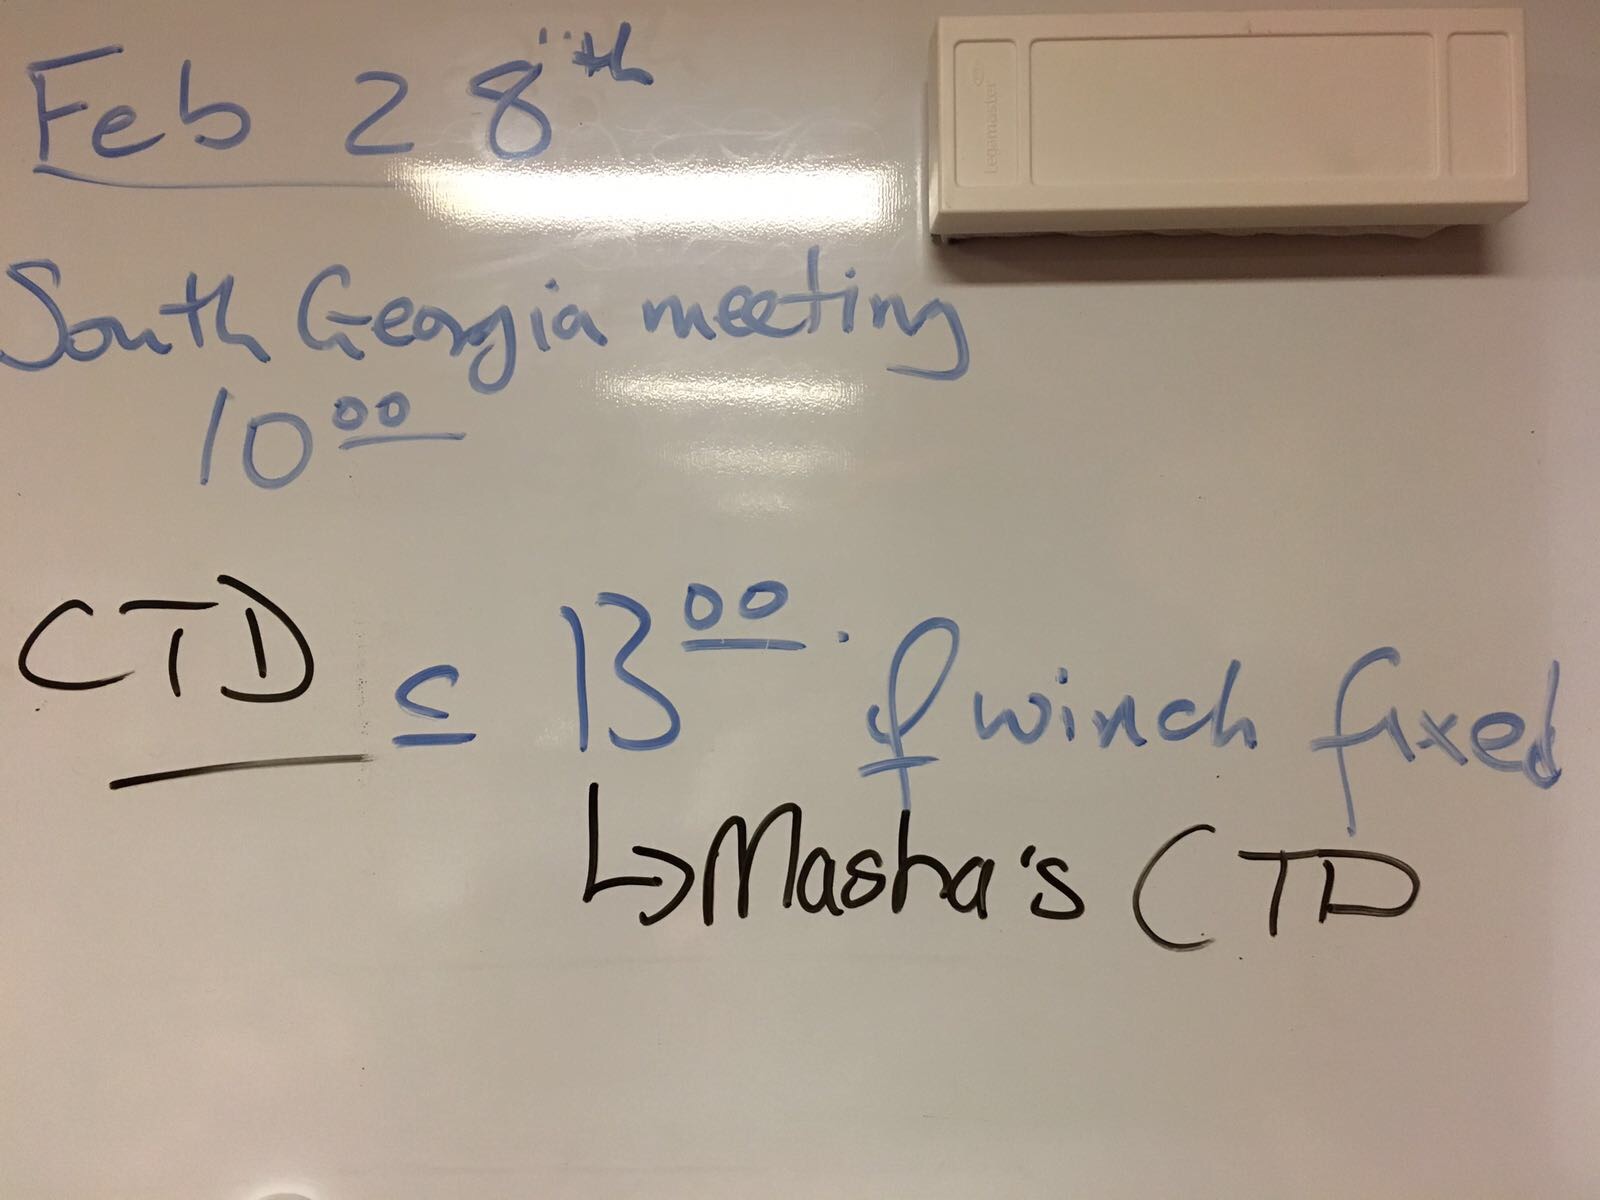 Feb 28th
legamaster
South Georgia meeting
10 00
CTD ≤ 13 00 if winch fixed
↳ Masha's CTD